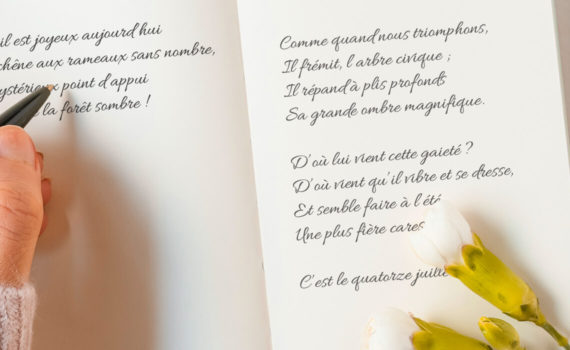 il est joyeux aujourd hui
chêne aux rameaux sans nombre,
ystérieux point d appui
la forêt sombre !
Comme quand nous triomphons,
Il frémit, l arbre civique ;
Il répand à plis profonds
Sa grande ombre magnifique.
D'où lui vient cette gaieté ?
D'où vient qu'il vibre et se dresse,
Et semble faire à l été
Une plus fière cares
C'est le quatorze juille